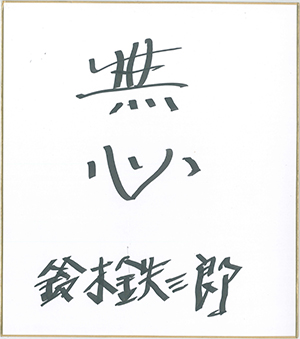 無
心
鈴木鉄三郎